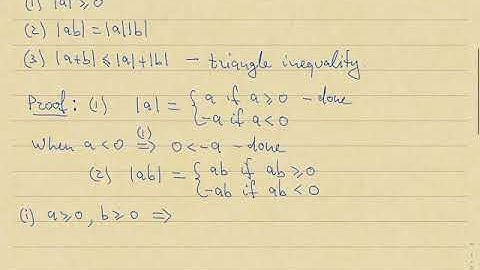 (1) |a| ≥ 0
(2) |ab| = |a||b|
(3) |a+b| ≤ |a|+|b| – triangle inequality
Proof: (1) |a| = { a if a ≥ 0 – done
-a if a < 0
When a < 0 (i) ⇒ 0 < -a – done
(2) |ab| = { ab if ab ≥ 0
-ab if ab < 0
(i) a ≥ 0, b ≥ 0 ⇒